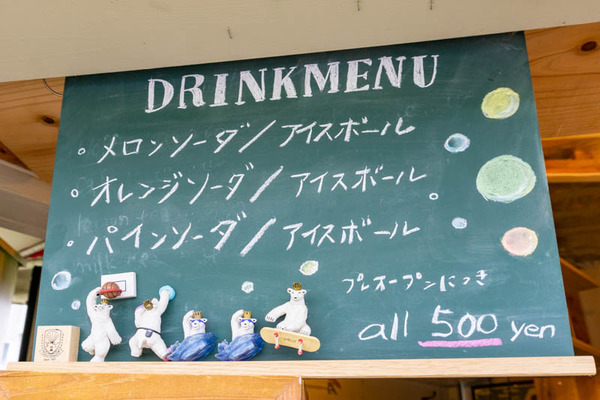 DRINKMENU
。メロンソーダ/アイスボール
。オレンジソーダ/アイスボール
。パインソーダ/アイスボール
プレオープンにつき
all 500 yen